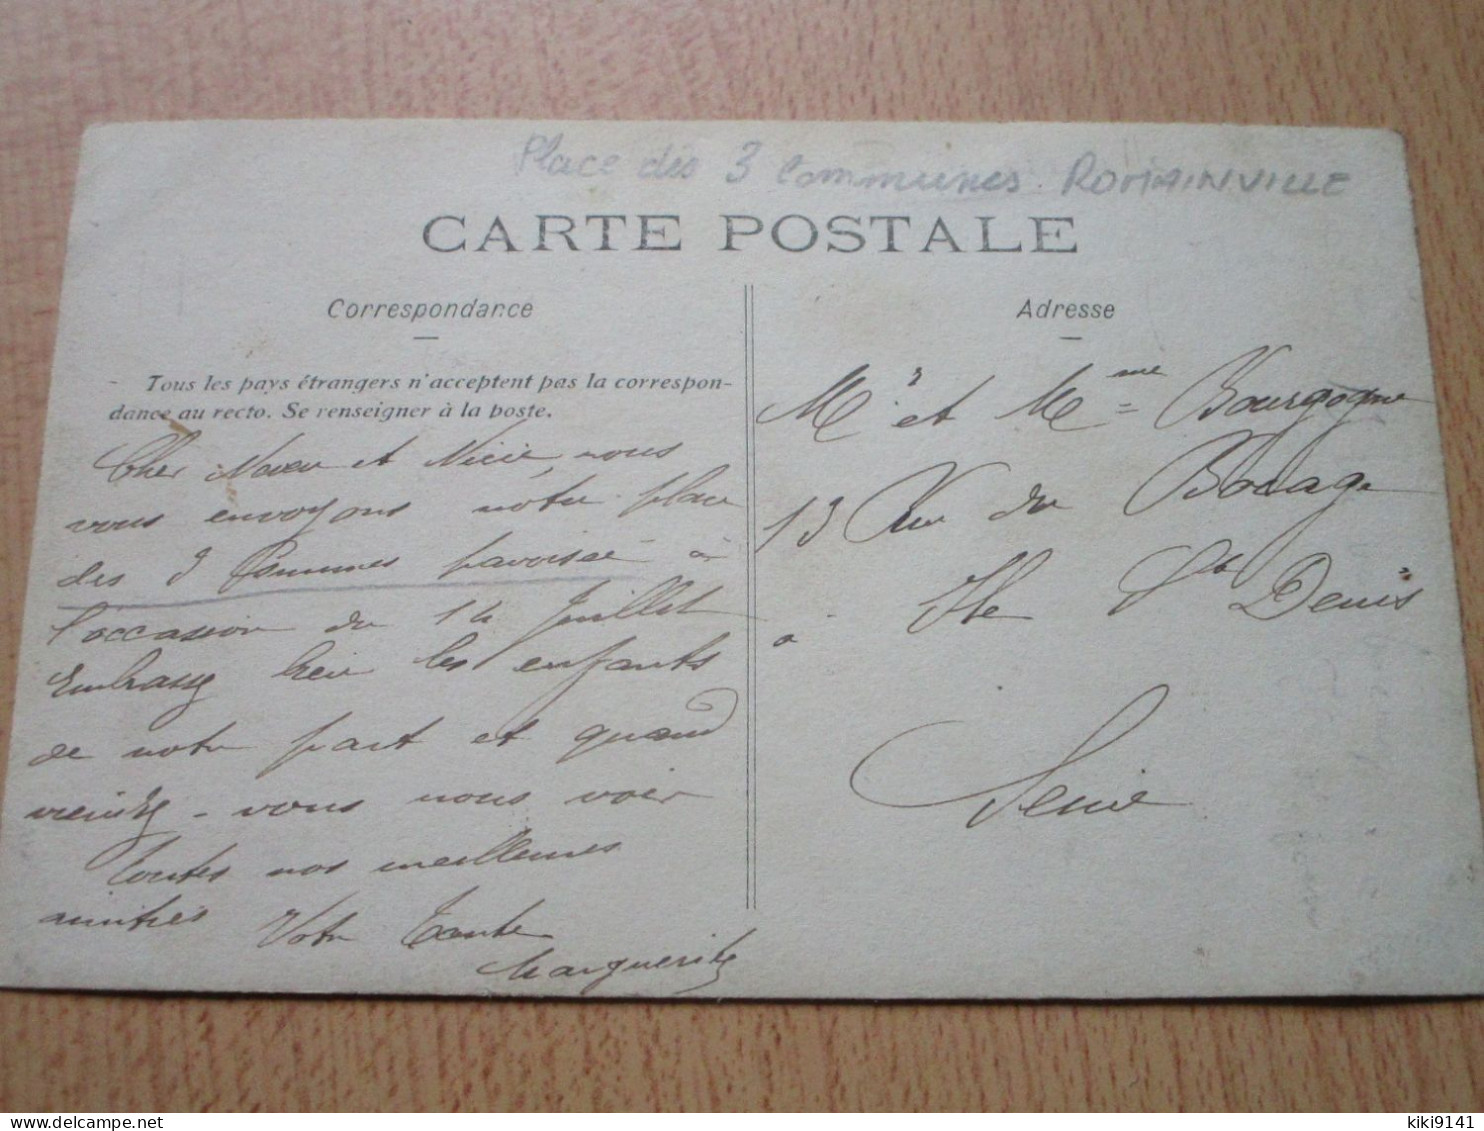 Place des 3 communes. ROMAINVILLE
CARTE POSTALE
Correspondance
Tous les pays étrangers n'acceptent pas la correspon-
dance au recto. Se renseigner à la poste.
Cher Neveu et Nièce, nous
vous envoyons notre place
des 3 Communes pavoisée à
l'occasion du 14 Juillet
Embrassez bien les enfants
de notre part et quand
viendrez-vous nous voir
toutes nos meilleures
amitiés Votre Tante
Marguerite
Adresse
Mr et Mme Bourgogne
13 Rue du Bocage
à Ile St Denis
Seine
kiki9141